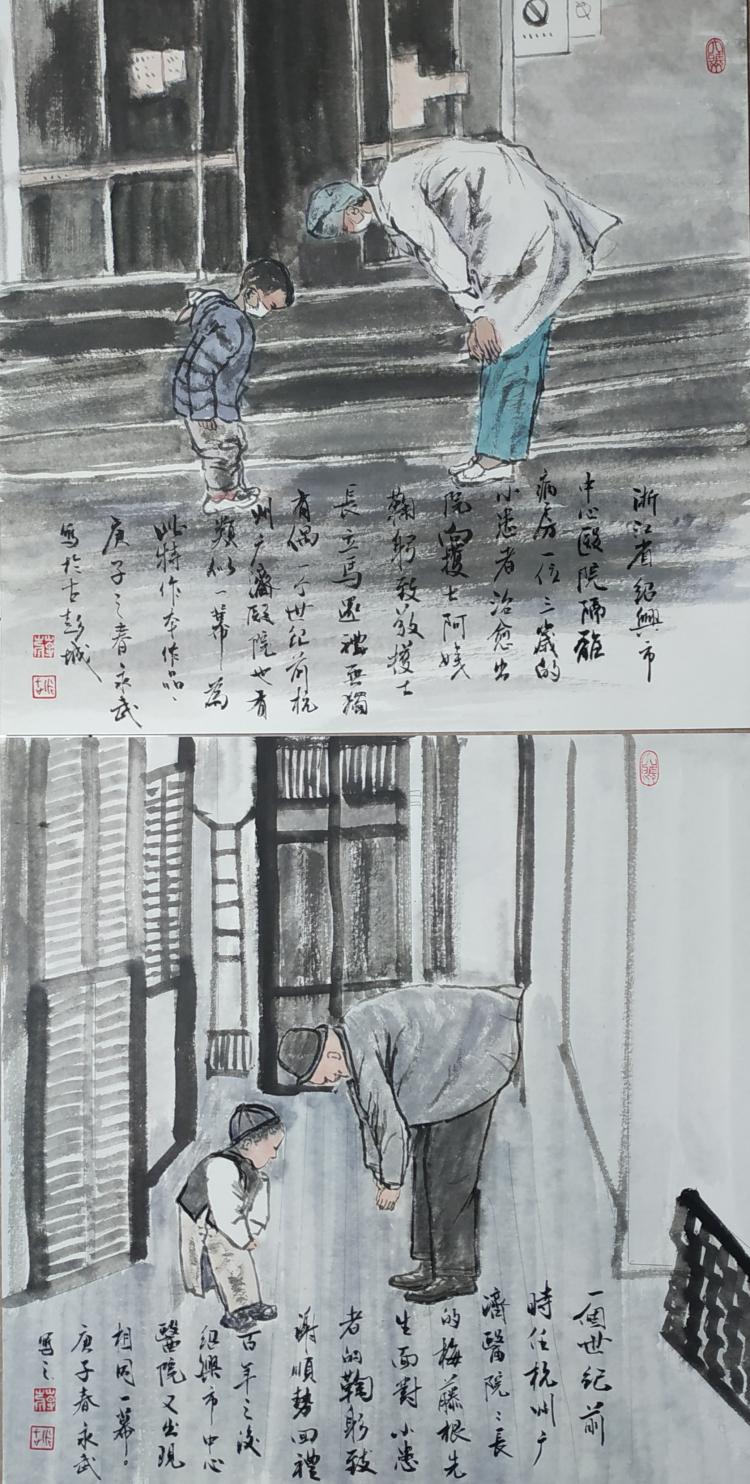 浙江省紹興市
中心醫院隔離
病房一位三歲的
小患者治愈出
院向護士阿姨
鞠躬致敬護士
長立馬還禮無獨
有偶一个世纪前杭
州广濟醫院也有
類似一幕為
此特作本作品、
庚子之春永武
寫於古彭城
一個世纪前
時任杭州广
濟醫院:長
的梅藤根先
生面對小患
者的鞠躬致
謝順勢回禮
百年之後
紹興市中心
醫院又出現
相同一幕。
庚子春永武
寫之